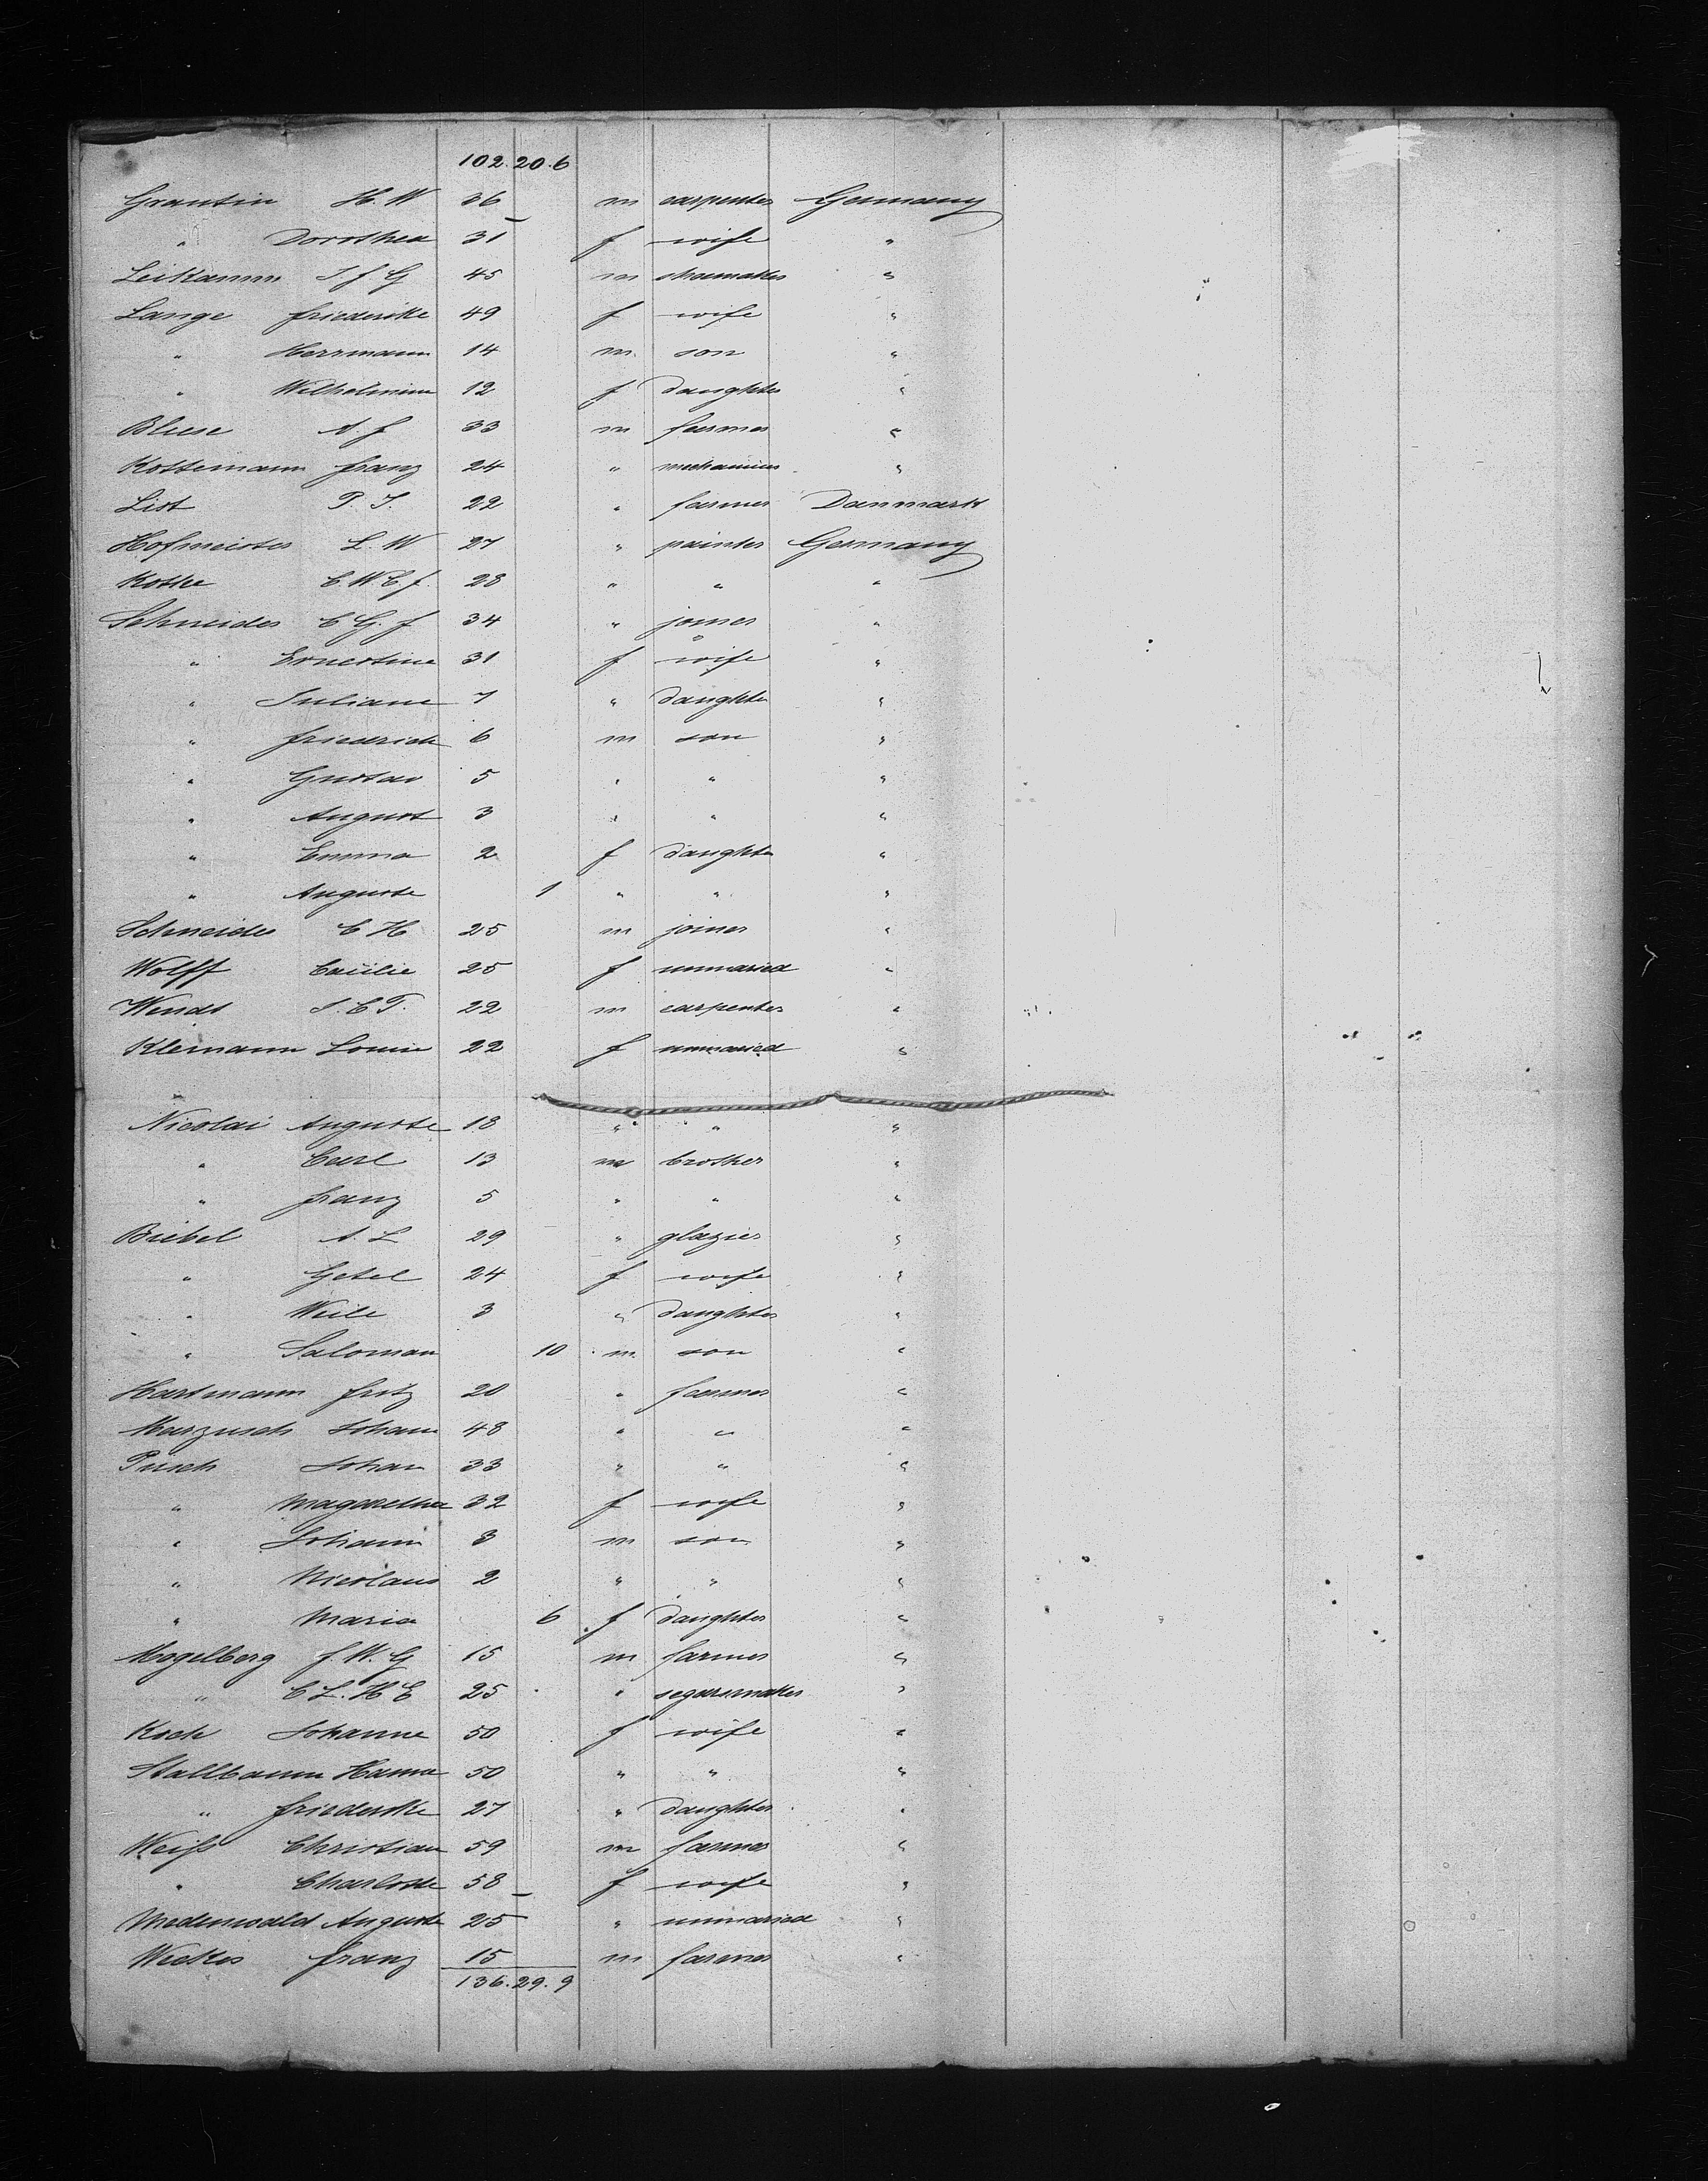 102. 20. 6
Grantin H. W 36 m carpenter Germany
" Dorothea 31 f wife "
Leikamm J f G 45 m shoemaker "
Lange friederike 49 f wife "
" Herrmann 14 m son "
" Wilhelmine 12 f daughter "
Bliese A. f 33 m farmer "
Kottemann franz 24 " mechanicus "
List P. J. 22 " farmer Danmark
Hofmeister L. W 27 " painter Germany
Kothe C. W C f. 28 " " "
Schneider C G. f 34 " joiner "
" Ernestine 31 f wife "
" Juliane 7 " daughter "
" friedrich 6 m son "
" Gustav 5 " " "
" August 3 " " "
" Emma 2 f daughter "
" Auguste 1 " " "
Schneider C H 25 m joiner "
Wolff 25 f unmaried "
Wendt J. C T. 22 m carpenter "
Klemann Louise 22 f unmaried "
Nicolai Auguste 18 " " "
" Carl 13 m brother "
" franz 5 " " "
Biebel A. L 29 " glazier "
" Getel 24 f wife "
" Weile 3 " daughter "
" Saloman 10 m son "
Hartmann fritz 20 " farmer "
Marzusch Johann 48 " " "
Pusch Johan 33 " " "
" Magaretha 32 f wife "
" Johann 3 m son "
" Nicolaus 2 " " "
" Maria 6 f daughter "
Mogelberg f. W. G 15 m farmer "
" C L. H E 25 " segarsmaker "
Koch Johanne 50 f wife "
Stallbaum Hanna 50 " " "
" friederike 27 " daughter "
Weiß Christian 59 m farmer "
" Charlotte 58 f wife "
Medenwald Auguste 25 " unmaried "
franz 15 m farmer "
136. 29. 9